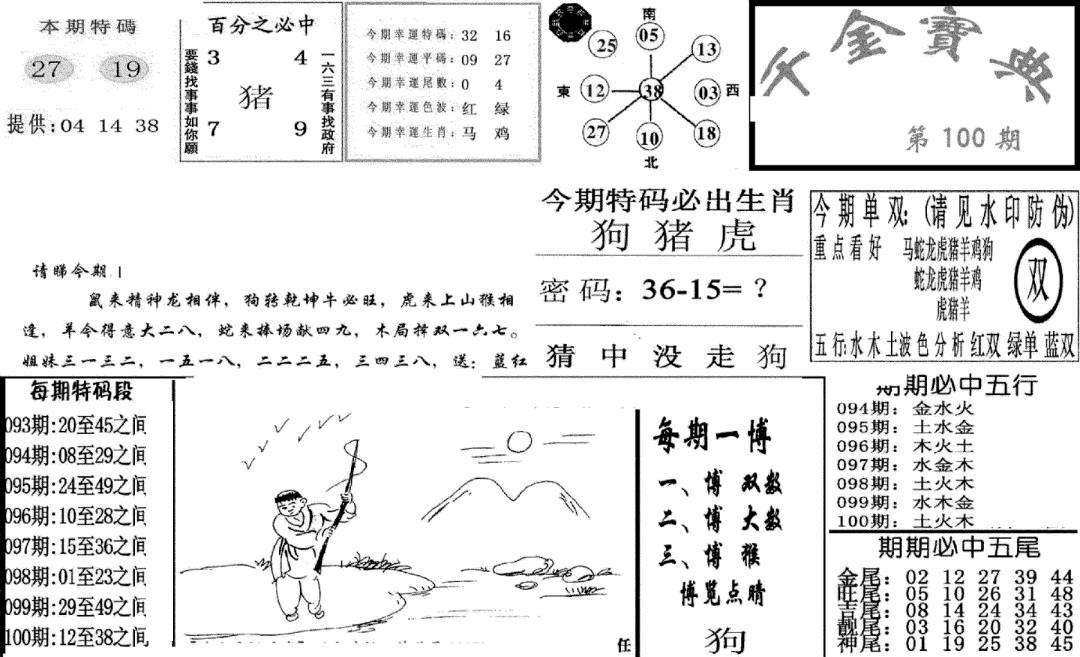 本期特碼
27 19
提供:04 14 38
百分之必中
要錢找事事如你願
3 4
猪
7 9
一六三有事找政府
今期幸運特碼: 32 16
今期幸運平碼: 09 27
今期幸運尾數: 0 4
今期幸運色波: 红 绿
今期幸運生肖: 马 鸡
南
25 05 13
東 12 38 03 西
27 10 18
北
金寶典
第100期
请睇今期.1
鼠来精神龙相伴,狗转乾坤牛必旺,虎来上山猴相
逢,羊今得意大二八,蛇来捧场献四九,木局择双一六七。
姐妹三一三二,一五一八,二二二五,三四三八,送:蓝红
今期特码必出生肖
狗 猪 虎
密码: 36-15=?
猜中没走狗
今期单双:(请见水印防伪)
重点看好 马蛇龙虎猪羊鸡狗
蛇龙虎猪羊鸡
虎猪羊
双
五行:水木土波色分析红双绿单蓝双
每期特码段
093期:20至45之间
094期:08至29之间
095期:24至49之间
096期:10至28之间
097期:15至36之间
098期:01至23之间
099期:29至49之间
100期:12至38之间
任
每期一博
一、博 双数
二、博 大数
三、博 猴
博览点睛
狗
期期必中五行
094期: 金水火
095期: 土水金
096期: 木火土
097期: 水金木
098期: 土火木
099期: 水木金
100期: 土火木
期期必中五尾
金尾: 02 12 27 39 44
旺尾: 05 10 26 31 48
吉尾: 08 14 24 34 43
靓尾: 03 16 20 32 40
神尾: 01 19 25 38 45